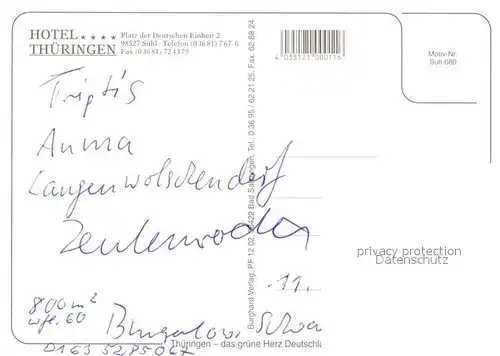 HOTEL ★★★★
THÜRINGEN
Platz der Deutschen Einheit 2
98527 Suhl · Telefon (0 36 81) 767-6
Fax (0 36 81) 724379
4 035121 000116
Motiv-Nr.
Suh 080
Triptis
Auma
Langenwolschendorf
Zeulenroda
11.
800 m²
wfl. 60
Bungalow
0163 5285067
Burghard Verlag, PF 12 02, 36422 Bad Salzungen, Tel.: 0 36 95 / 62 21 25, Fax: 62 88 24
Thüringen – das grüne Herz Deutschl
privacy protection
Datenschutz